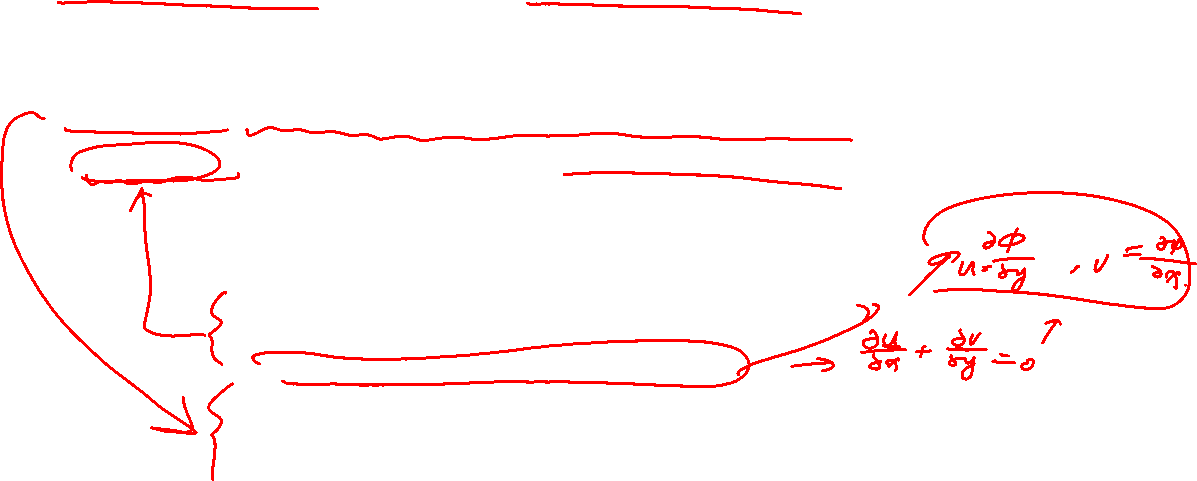 u = ∂φ/∂y , v = ∂φ/∂x
∂u/∂x + ∂v/∂y = 0